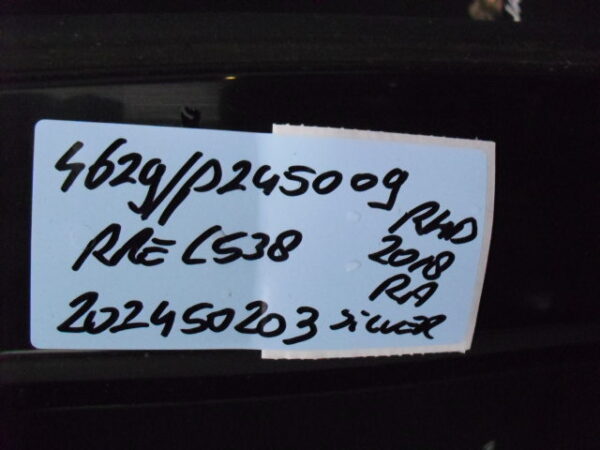 4629/P245009
RRE L538
RHD
2018
RA
202450203 SILVER